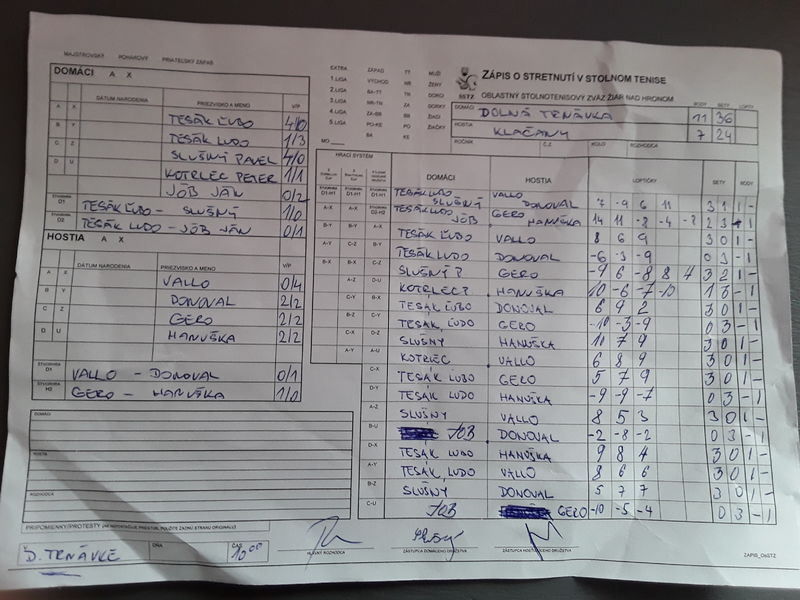 MAJSTROVSKÝ POHÁROVÝ PRIATEĽSKÝ ZÁPAS
DOMÁCI A X
DÁTUM NARODENIA PRIEZVISKO A MENO V/P
A X TESÁK ĽUBO 4/0
B Y TESÁK LUDO 1/3
C Z SLUŠNÝ PAVEL 4/0
D U KOTRLEC PETER 1/1
JÓB JÁN 0/2
ŠTVORHRA D1 TESÁK ĽUBO - SLUŠNÝ 1/0
ŠTVORHRA D2 TESÁK LUDO - JÓB JÁN 0/1
HOSTIA A X
DÁTUM NARODENIA PRIEZVISKO A MENO V/P
A X VALLO 0/4
B Y DONOVAL 2/2
C Z GERO 2/2
D U HANUŠKA 2/2
ŠTVORHRA H1 VALLO - DONOVAL 0/1
ŠTVORHRA H2 GERO - HANUŠKA 1/0
DOMÁCI
HOSTIA
ROZHODCA
PRIPOMIENKY/PROTESTY (AK NEPOSTAČUJE PRIESTOR, POUŽITE ZADNÚ STRANU ORIGINÁLU)
D. TRNÁVKE DŇA ČAS 10 00
HLAVNÝ ROZHODCA
ZÁSTUPCA DOMÁCEHO DRUŽSTVA
ZÁSTUPCA HOSŤUJÚCEHO DRUŽSTVA
ZAPIS_ObSTZ
EXTRA ZÁPAD TT MUŽI
1. LIGA VÝCHOD NR ŽENY
2. LIGA BA-TT TN DORCI
3. LIGA NR-TN ZA DORKY
4. LIGA ZA-BB BB ŽIACI
5. LIGA PO-KE PO ŽIAČKY
BA KE
MO
SSTZ
ZÁPIS O STRETNUTÍ V STOLNOM TENISE
OBLASTNÝ STOLNOTENISOVÝ ZVÄZ ŽIAR NAD HRONOM
BODY SETY LOPTY
DOMÁCI DOLNÁ TRNÁVKA 11 36
HOSTIA KLAČANY 7 24
ROČNÍK Č.Z. KOLO ROZHODCA
HRACÍ SYSTÉM
DOMÁCI HOSTIA LOPTIČKY SETY BODY
TESÁK ĽUBO SLUŠNÝ VALLO DONOVAL 7 -9 6 11 3 1 1 -
TESÁK LUDO JÓB GERO HANUŠKA 14 11 -8 -4 -8 2 3 - 1
TESÁK ĽUBO VALLO 8 6 9 3 0 1 -
TESÁK LUDO DONOVAL -6 -3 -9 0 3 - 1
SLUŠNÝ P GERO -9 6 -8 8 7 3 2 1 -
KOTRLEC P HANUŠKA 10 -6 -7 -10 1 3 - 1
TESÁK ĽUBO DONOVAL 6 9 2 3 0 1 -
TESÁK LUDO GERO -10 -3 -9 0 3 - 1
SLUŠNÝ HANUŠKA 10 7 9 3 0 1 -
KOTRLEC VALLO 6 8 9 3 0 1 -
C-X TESÁK ĽUBO GERO 5 7 9 3 0 1 -
D-Y TESÁK LUDO HANUŠKA -9 -9 -7 0 3 - 1
A-Z SLUŠNÝ VALLO 8 5 3 3 0 1 -
B-U JÓB DONOVAL -2 -8 -2 0 3 - 1
D-X TESÁK ĽUBO HANUŠKA 9 8 4 3 0 1 -
A-Y TESÁK LUDO VALLO 8 6 6 3 0 1 -
B-Z SLUŠNÝ DONOVAL 5 7 7 3 0 1 -
C-U JÓB GERO -10 -5 -4 0 3 - 1